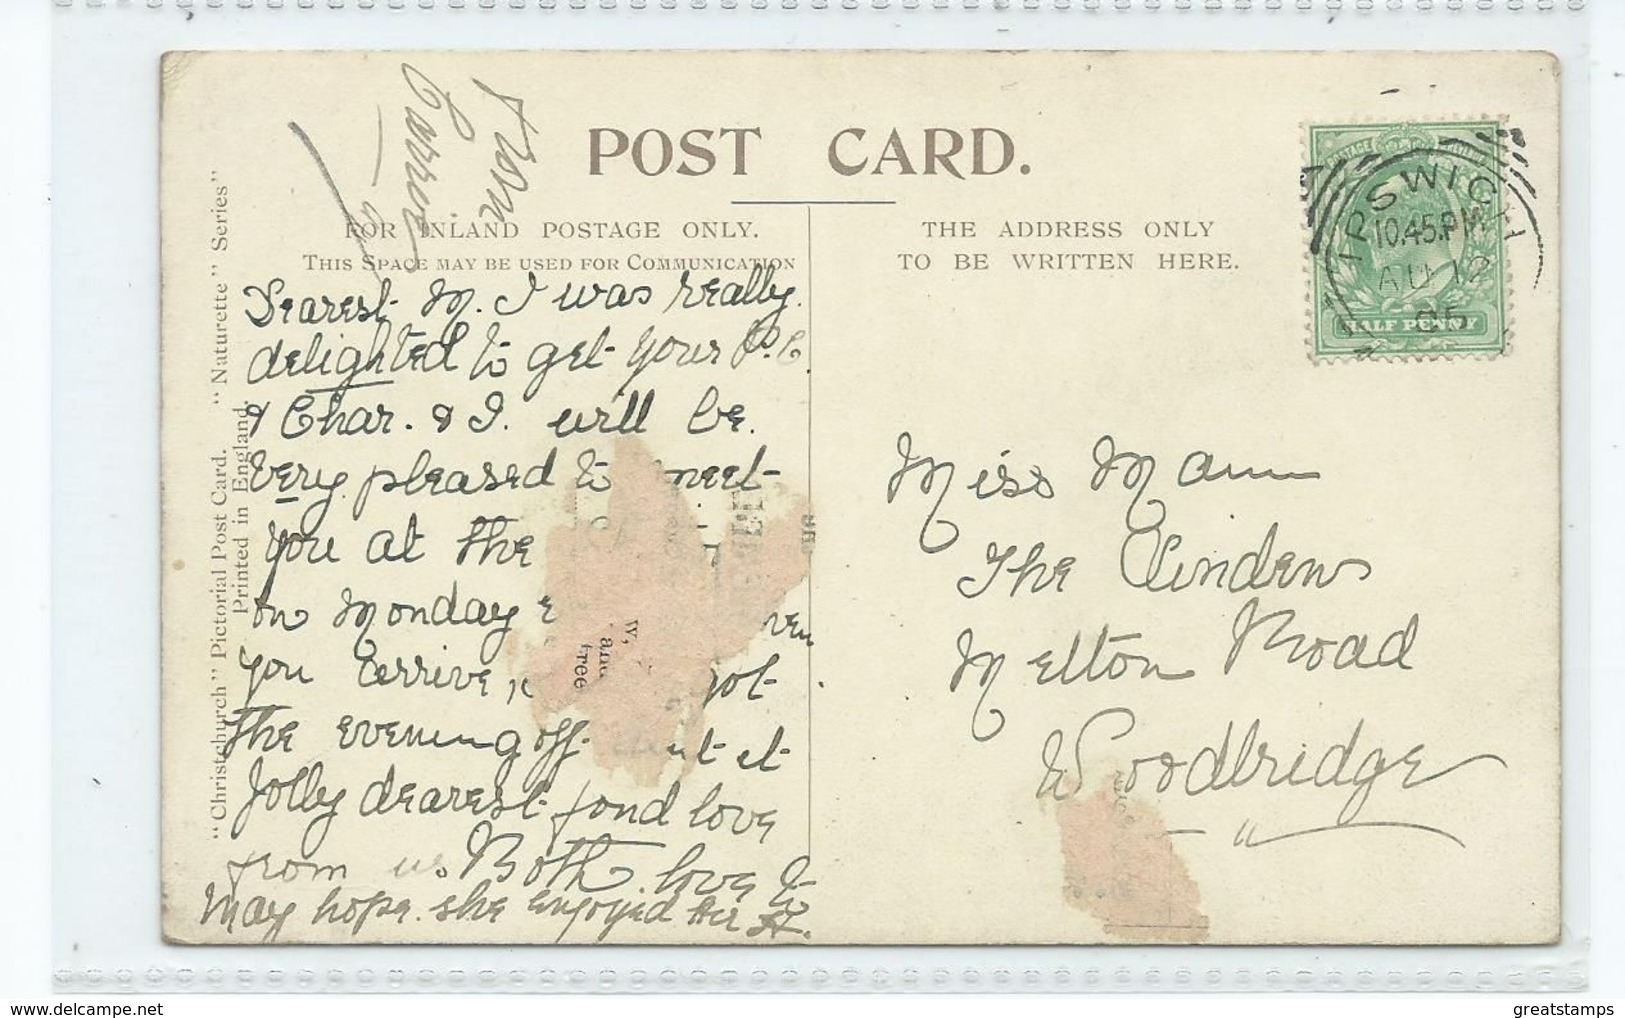 POST CARD.
FOR INLAND POSTAGE ONLY.
THIS SPACE MAY BE USED FOR COMMUNICATION
THE ADDRESS ONLY
TO BE WRITTEN HERE.
IPSWICH
10.45.PM
AU 12
05
POSTAGE
HALF PENNY
From
Dearest M. I was really
delighted to get your P.C
& Char. & I. will be.
very pleased to meet
you at the
on Monday
you arrive,
the evening off it
Jolly dearest fond love
from us Both. love to
May hope she enjoyed her
w,
and
free
Miss Mann
The Lindens
Melton Road
Woodbridge
"Christchurch" Pictorial Post Card. "Naturette" Series"
Printed in England.
greatstamps